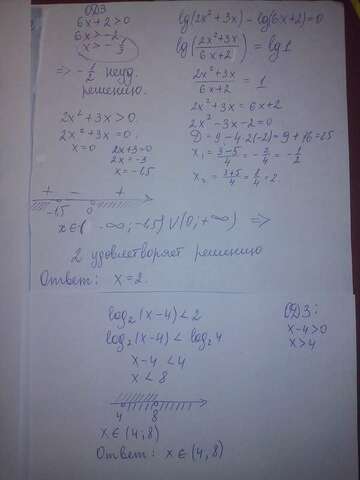 ОДЗ
6x+2>0
6x>-2
x>-1/3
=> -1/2 неуд.
решению.
2x²+3x>0
2x²+3x=0
x=0 2x+3=0
2x=-3
x=-1.5
lg(2x²+3x)-lg(6x+2)=0
lg(2x²+3x/6x+2)=lg1
2x²+3x/6x+2=1
2x²+3x=6x+2
2x²-3x-2=0
D=9-4·2(-2)=9+16=25
x₁=3-5/4=-2/4=-1/2
x₂=3+5/4=8/4=2
+ - +
-1.5 0
x∈(-∞;-1.5)V(0;+∞) =>
2 удовлетворяет решению
Ответ: x=2.
log₂(x-4)<2
log₂(x-4)<log₂4
x-4<4
x<8
4 8
x∈(4;8)
Ответ: x∈(4,8)
ОДЗ:
x-4>0
x>4